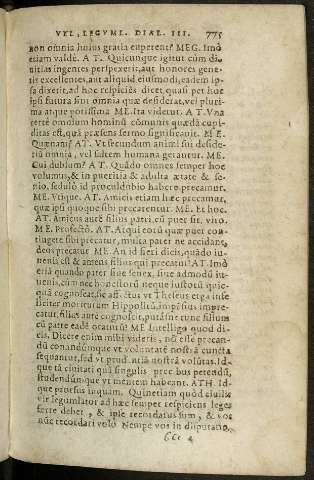 VEL, LEGVM. DIAL. III. 775
non omnia huius gratia cuperent? MEG. Imò
etiam valdè. AT. Quicunque igitur cùm di-
uitias ingentes perspexerit, aut honores gene-
ris excellentes, aut aliquid eiusmodi, eadem ip-
sa dixerit, ad hoc respiciēs dicet, quasi per hoc
ipsi futura sint omnia quæ desiderat, vel pluri-
ma atque potissima ME. Ita videtur. AT. Vna
certè omniũ hominũ cõmunis quædã cupi-
ditas est, quã præsens sermo significauit. ME.
Quænam? AT. Vt secundum animi sui deside-
riũ omnia, vel saltem humana gerantur. ME.
Cui dubium? AT. Quãdo omnes semper hoc
volumus, & in pueritia & adulta ætate & se-
nio, sedulò id proculdubio habere precamur.
ME. Vtique. AT. Amicis etiam hæc precamur,
quæ ipsi quoque sibi precarentur. ME. Et hoc.
AT. Amicus autē filius patri, cũ puer sit, viro.
ME. Profectò. AT. Atqui eorũ quæ puer con-
tingere sibi precatur, multa pater ne accidant,
deos precatur ME. An id fieri dicis, quãdo iu-
uenis est & amens filius qui precatur? AT. Imò
etiã quando pater siue senex, siue admodũ iu-
uenis, cùm nec honestorũ neque iustorũ quic-
quã cognoscat, sic affectus vt Theseus erga infe-
liciter moriturum Hippolitũ, impẽsius impre-
catur, filius autē cognoscit, putãsne tunc filium
cũ patre eadē oraturũ? ME Intelligo quod di-
cis. Dicere enim mihi videris, nõ esse precan-
dũ conandũmque vt voluntatē nostrã cuncta
sequantur, sed vt prudētiã nostrã volũtas. Id-
que tã ciuitati quã singulis precibus petendũ,
studendũmque vt mentem habeant. ATH Id-
que prorsus inquam. Quinetiam quòd ciuilis
vir legumlator ad hæc semper respiciens leges
ferre debet, & ipse recordatus sum, & vos
nũc recordari volo Nempe vos in disputatio-
CCc 4